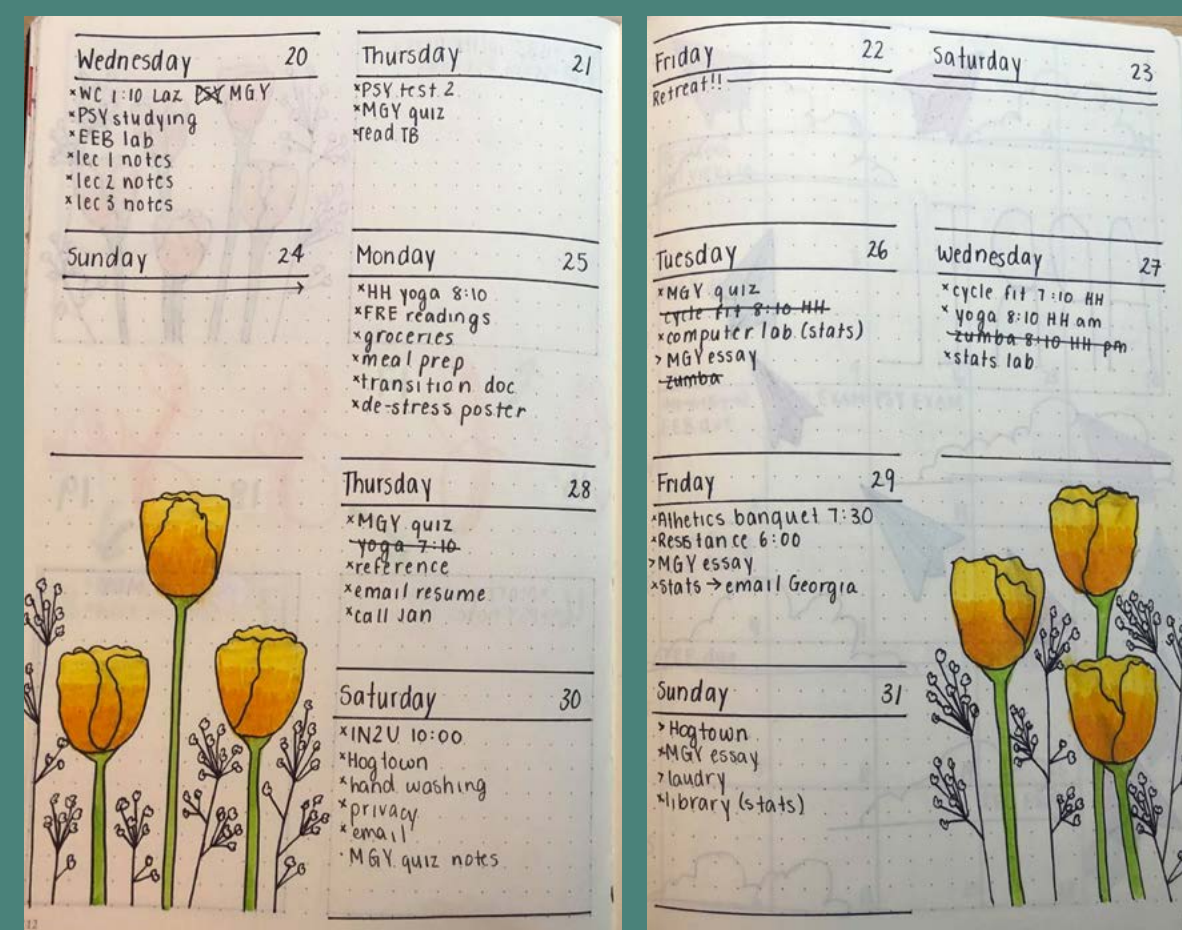 Wednesday 20
×WC 1:10 Laz PSY MGY
×PSY studying
×EEB lab
×lec 1 notes
×lec 2 notes
×lec 3 notes
Thursday 21
×PSY test 2
×MGY quiz
×read TB
Sunday 24
Monday 25
×HH yoga 8:10
×FRE readings
×groceries
×meal prep
×transition doc
×de-stress poster
Thursday 28
×MGY quiz
yoga 7:10
×reference
×email resume
×call Jan
Saturday 30
×IN2U 10:00
×Hogtown
×hand washing
×privacy
×email
·MGY quiz notes
12
Friday 22
Retreat!!
Saturday 23
Tuesday 26
×MGY quiz
cycle fit 8:10 HH
×computer lab (stats)
>MGY essay
zumba
Wednesday 27
×cycle fit 7:10 HH
×yoga 8:10 HH am
zumba 8:10 HH pm
×stats lab
Friday 29
×Athetics banquet 7:30
×Resistance 6:00
>MGY essay
×stats → email Georgia
Sunday 31
>Hogtown
×MGY essay
>laudry
×library (stats)